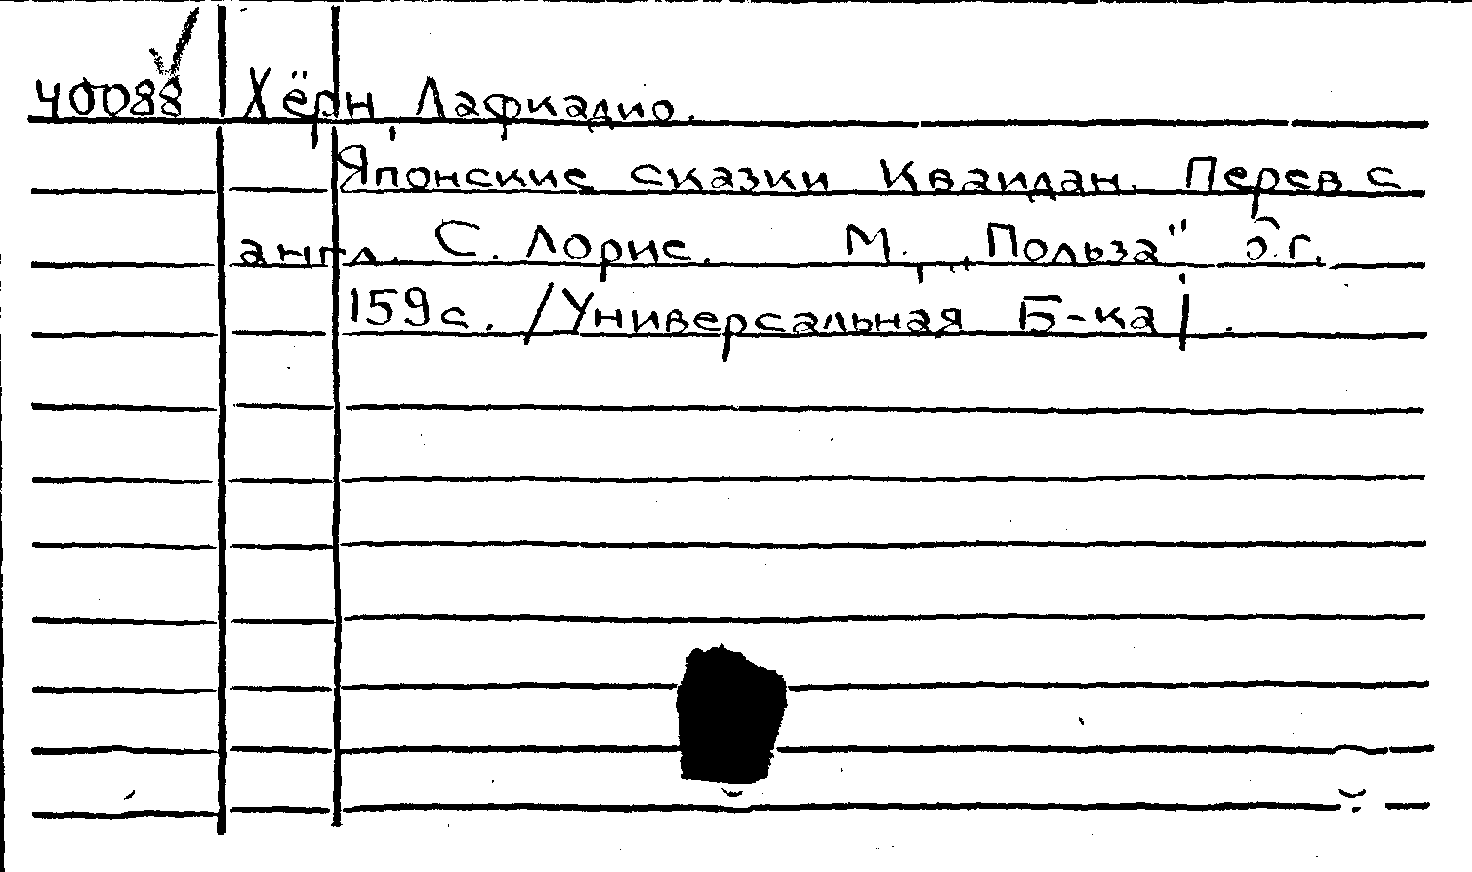 40088 Хёрн, Лафкадио.
Японские сказки Кваидан. Перев с
англ. С. Лорие. М., „Польза" б.г.
159 с. /Универсальная Б-ка/.